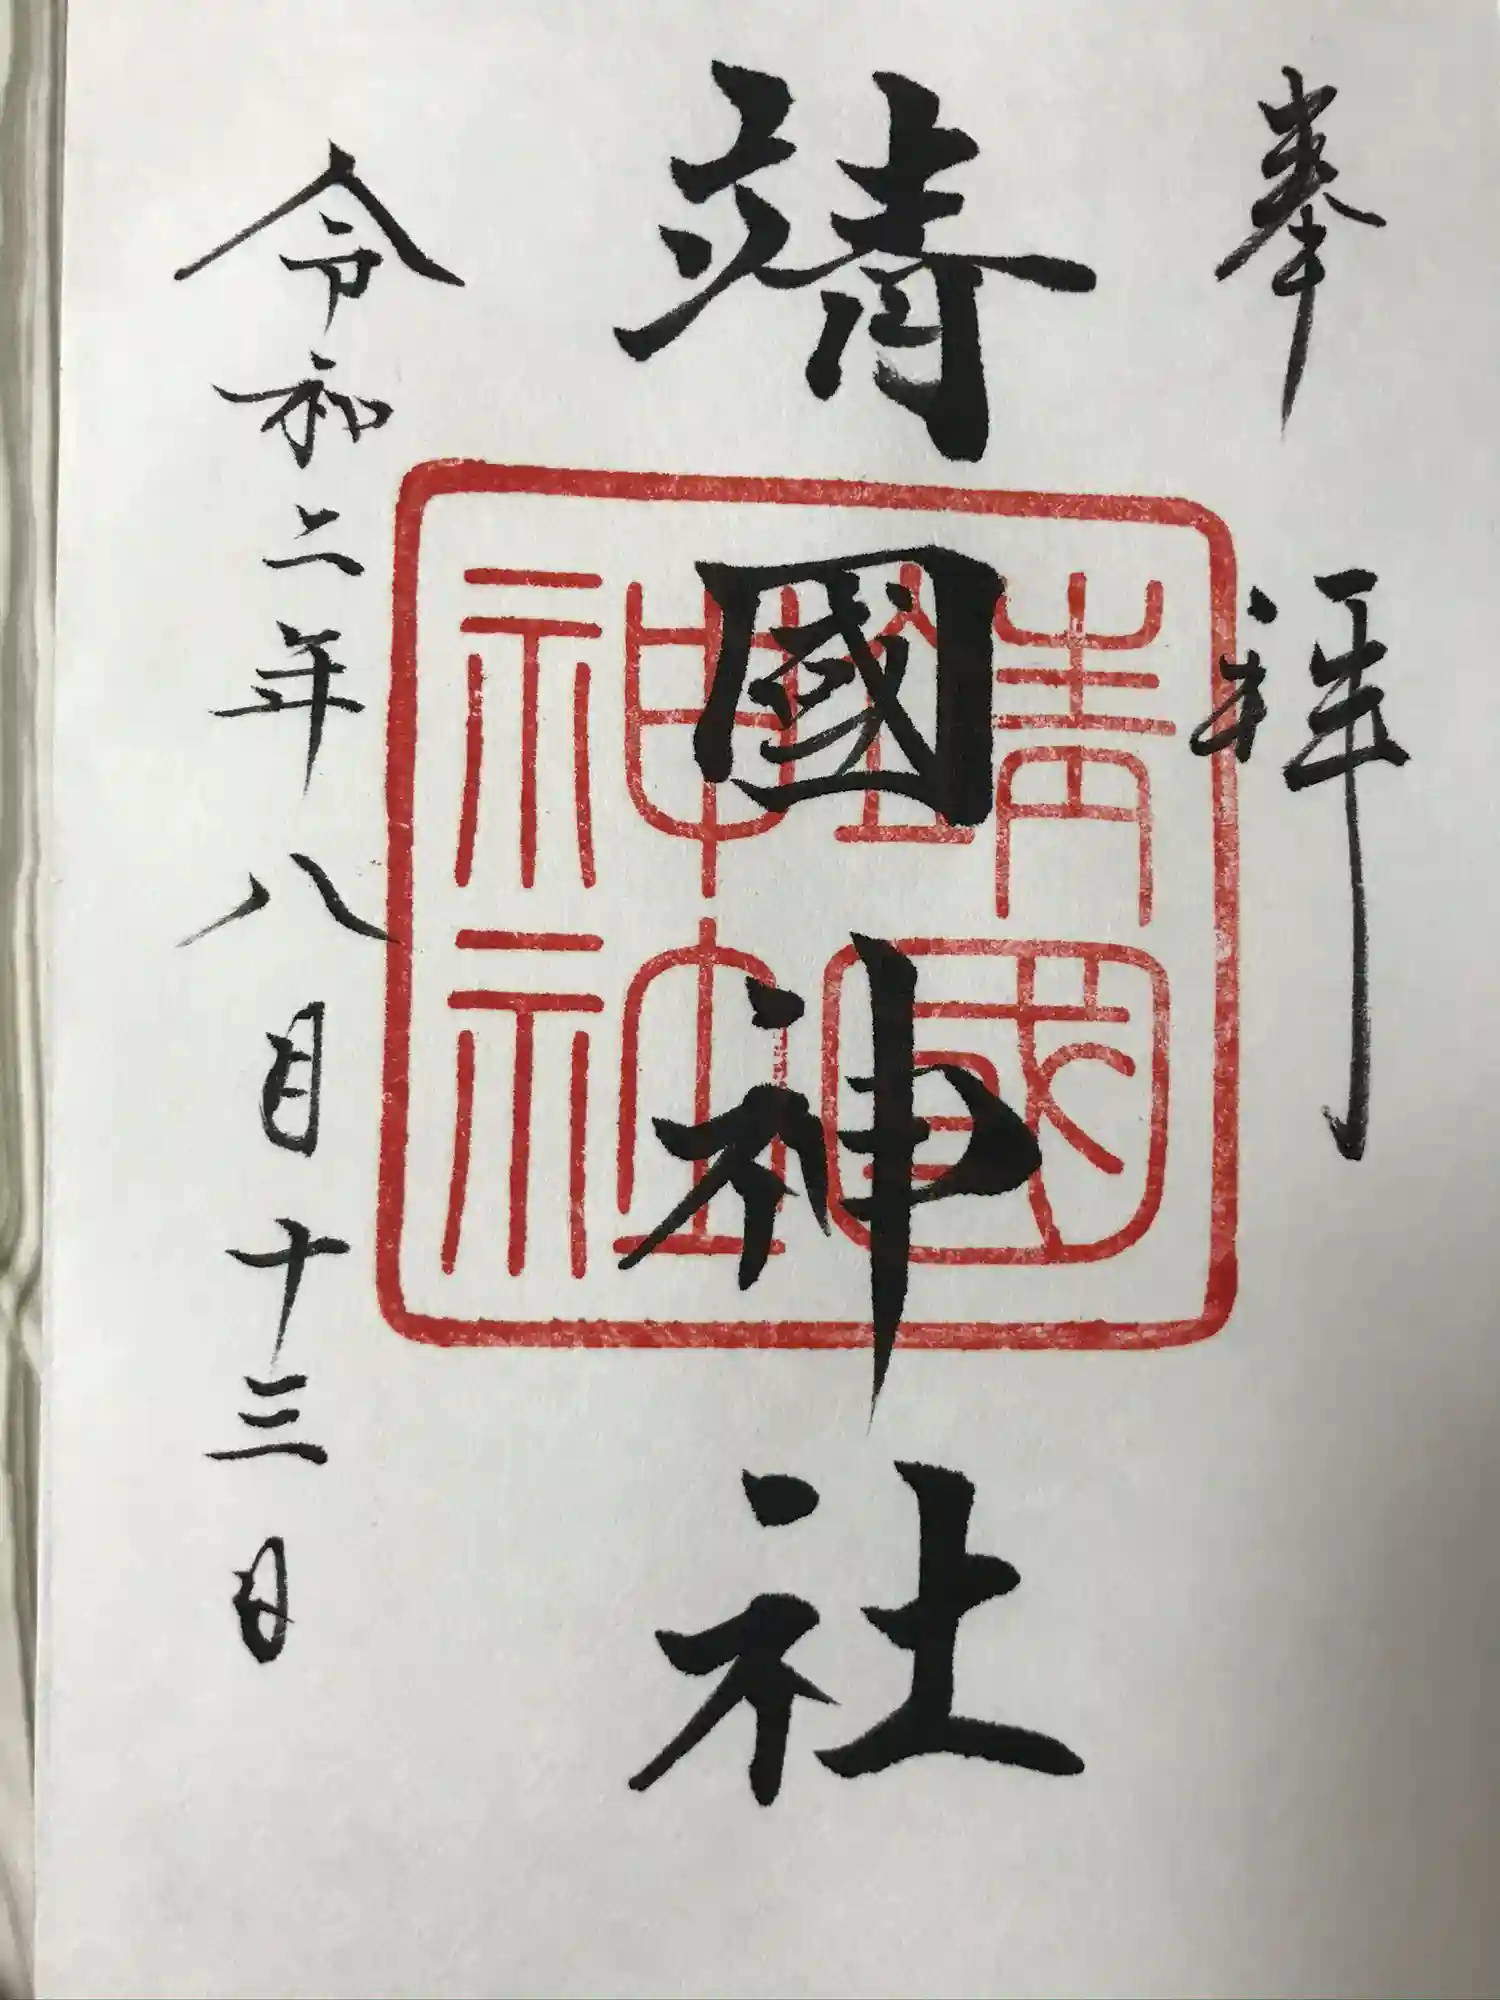 奉拝
靖國神社
靖國
神社
令和二年八月十三日